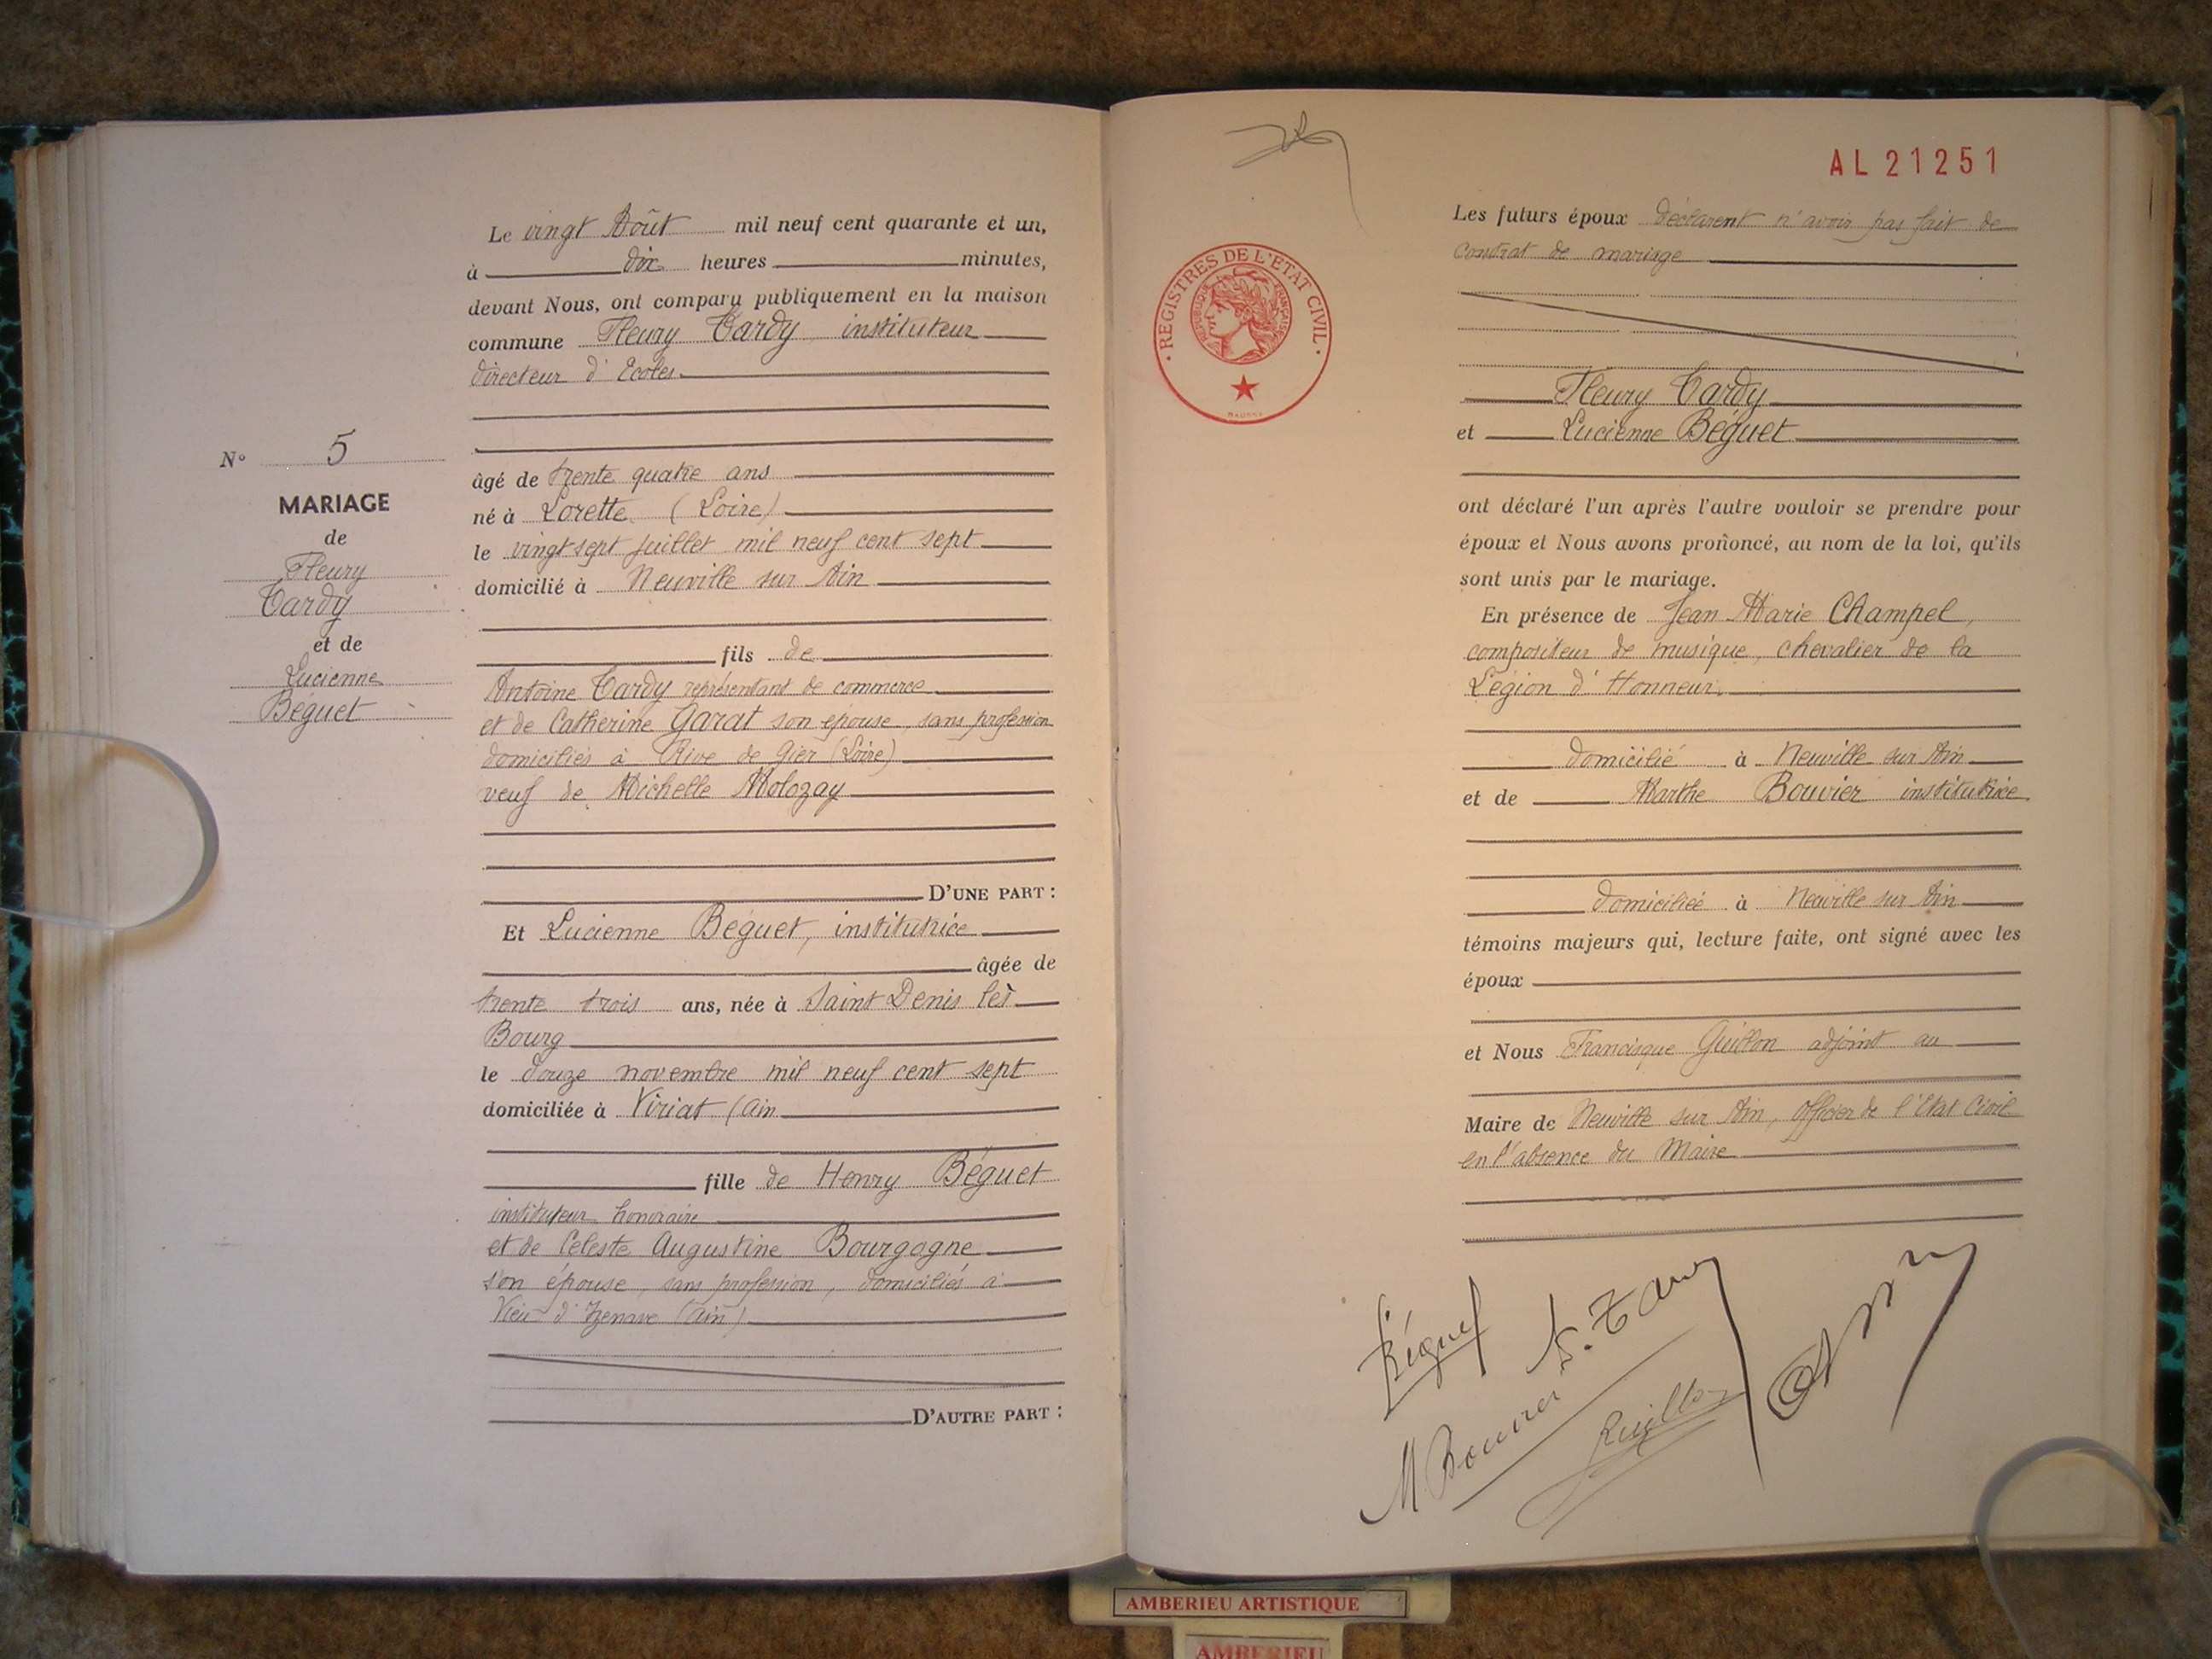 Le vingt Août mil neuf cent quarante et un,
à dix heures minutes,
devant Nous, ont comparu publiquement en la maison
commune Fleury Tardy instituteur
directeur d'Ecoles
N° 5
MARIAGE
de
Fleury
Tardy
et de
Lucienne
Béguet
âgé de trente quatre ans
né à Lorette (Loire)
le vingt sept juillet mil neuf cent sept
domicilié à Neuville sur Ain
fils de
Antoine Tardy représentant de commerce
et de Catherine Garat son épouse, sans profession
domiciliés à Rive de Gier (Loire)
veuf de Michelle Molozay
D'UNE PART :
Et Lucienne Béguet, institutrice
âgée de
trente trois ans, née à Saint Denis lès
Bourg
le douze novembre mil neuf cent sept
domiciliée à Viriat (Ain
fille de Henry Béguet
instituteur honoraire
et de Céleste Augustine Bourgogne
son épouse, sans profession, domiciliés à
Vieu d'Izenave (Ain)
D'AUTRE PART :
AL 21251
REGISTRES DE L'ETAT CIVIL
REPUBLIQUE FRANÇAISE
Les futurs époux déclarent n'avoir pas fait de
contrat de mariage
Fleury Tardy
et Lucienne Béguet
ont déclaré l'un après l'autre vouloir se prendre pour
époux et Nous avons prononcé, au nom de la loi, qu'ils
sont unis par le mariage.
En présence de Jean Marie Champel,
compositeur de musique, chevalier de la
Légion d'Honneur
domicilié à Neuville sur Ain
et de Marthe Bouvier institutrice
domiciliée à Neuville sur Ain
témoins majeurs qui, lecture faite, ont signé avec les
époux
et Nous Francisque Guillon adjoint au
Maire de Neuville sur Ain, Officier de l'Etat Civil
en l'absence du Maire
Béguet
M Bouvier
Guillon
AMBERIEU ARTISTIQUE
AMBERIEU